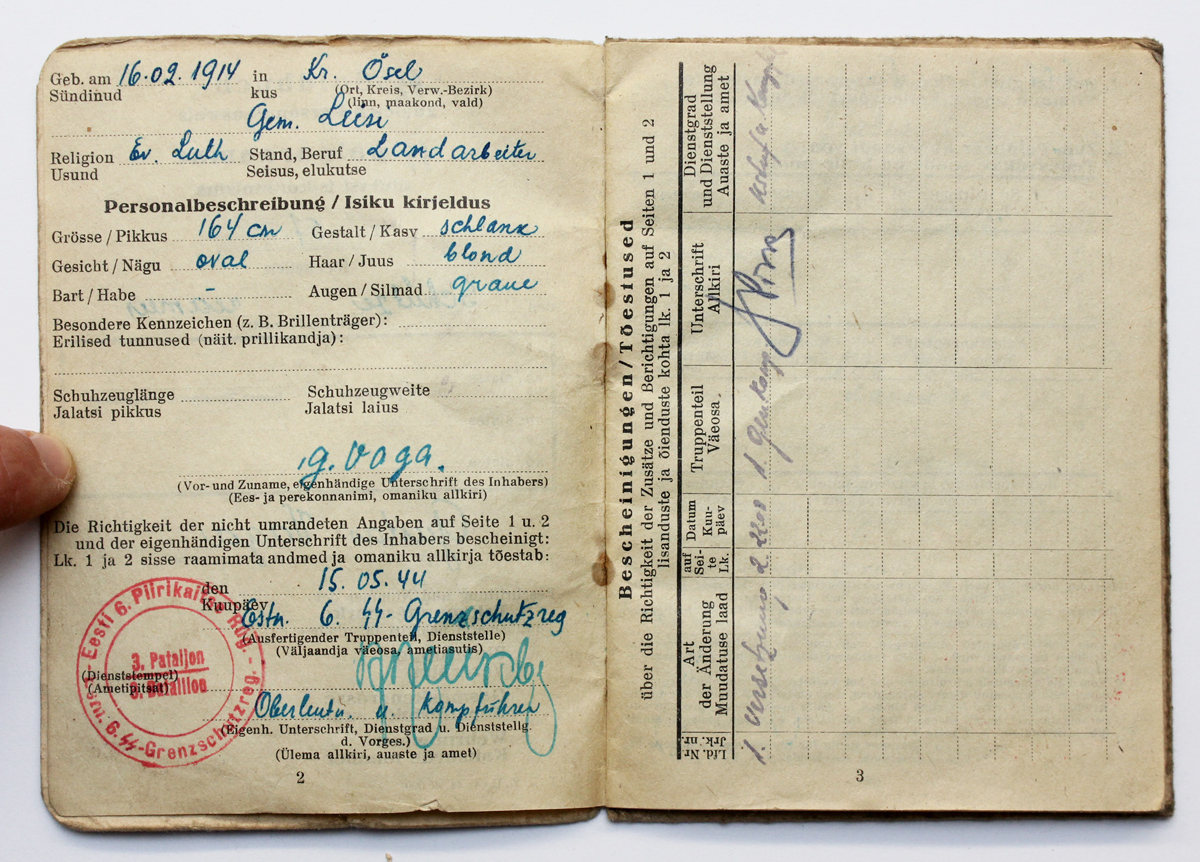 Geb. am 16.02.1914 in Kr. Ösel
Sündinud kus (Ort, Kreis, Verw.-Bezirk)
(linn, maakond, vald)
Gem. Leisi
Religion Ev. Luth Stand, Beruf Landarbeiter
Usund Seisus, elukutse
Personalbeschreibung / Isiku kirjeldus
Grösse / Pikkus 164 cm Gestalt / Kasv schlank
Gesicht / Nägu oval Haar / Juus blond
Bart / Habe - Augen / Silmad graue
Besondere Kennzeichen (z. B. Brillenträger):
Erilised tunnused (näit. prillikandja):
Schuhzeuglänge Schuhzeugweite
Jalatsi pikkus Jalatsi laius
g. Voga.
(Vor- und Zuname, eigenhändige Unterschrift des Inhabers)
(Ees- ja perekonnanimi, omaniku allkiri)
Die Richtigkeit der nicht umrandeten Angaben auf Seite 1 u. 2
und der eigenhändigen Unterschrift des Inhabers bescheinigt:
Lk. 1 ja 2 sisse raamimata andmed ja omaniku allkirja tõestab:
den 15.05.44
Kuupäev
Estn. 6. SS-Grenzschutzreg
(Ausfertigender Truppenteil, Dienststelle)
(Väljaandja väeosa, ametiasutis)
Eesti 6. Piirikaitse Rüg.
3. Pataljon
3. Bataillon
Estn. 6. SS-Grenzschutzreg.
(Dienststempel)
(Ametipitsat)
Oberleutn. u. Kompführer
(Eigenh. Unterschrift, Dienstgrad u. Dienststellg.
d. Vorges.)
(Ülema allkiri, auaste ja amet)
2
Bescheinigungen / Tõestused
über die Richtigkeit der Zusätze und Berichtigungen auf Seiten 1 und 2
lisanduste ja õienduste kohta lk. 1 ja 2
Lfd. Nr.
Jrk. nr.
Art
der Änderung
Muudatuse laad
auf
Sei-
te
Lk.
Datum
Kuu-
päev
Truppenteil
Väeosa.
Unterschrift
Allkiri
Dienstgrad
und Dienststellung
Auaste ja amet
1. Versetzung 2. 1. Gen Komp.
3